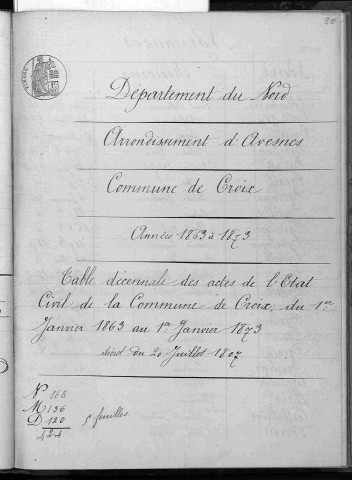 Département du Nord
Arrondissement d'Avesnes
Commune de Croix
Années 1863 à 1873
Table décennale des actes de l'Etat
Civil de la Commune de Croix, du 1er
Janvier 1863 au 1er Janvier 1873
décret du 20 Juillet 1807
N 168
M 136
D 120
424
5 feuilles.